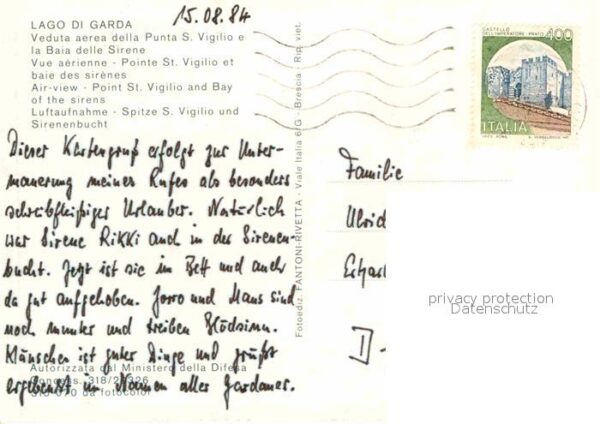 15.08.84
LAGO DI GARDA
Veduta aerea della Punta S. Vigilio e
la Baia delle Sirene
Vue aérienne - Pointe St. Vigilio et
baie des sirènes
Air-view - Point St. Vigilio and Bay
of the sirens
Luftaufnahme - Spitze S. Vigilio und
Sirenenbucht
Dieser Kartengruß erfolgt zur Unter-
mauerung meines Rufes als besonders
schreibfleißiger Urlauber. Natürlich
war Sirene Rikki auch in der Sirenen-
bucht. Jetzt ist sie im Bett und auch
da gut aufgehoben. Jorro und Mans sind
noch munter und treiben Blödsinn.
Mänschen ist guter Dinge und grüßt
ergebenst im Namen aller Gardaner.
Autorizzata dal Ministero della Difesa
318/
da fotocolor
Fotoediz. FANTONI-RIVETTA - Viale Italia 6/G - Brescia - Rip. viet.
CASTELLO
DELL'IMPERATORE PRATO
400
ITALIA
Familie
Ulrich
D-
privacy protection
Datenschutz